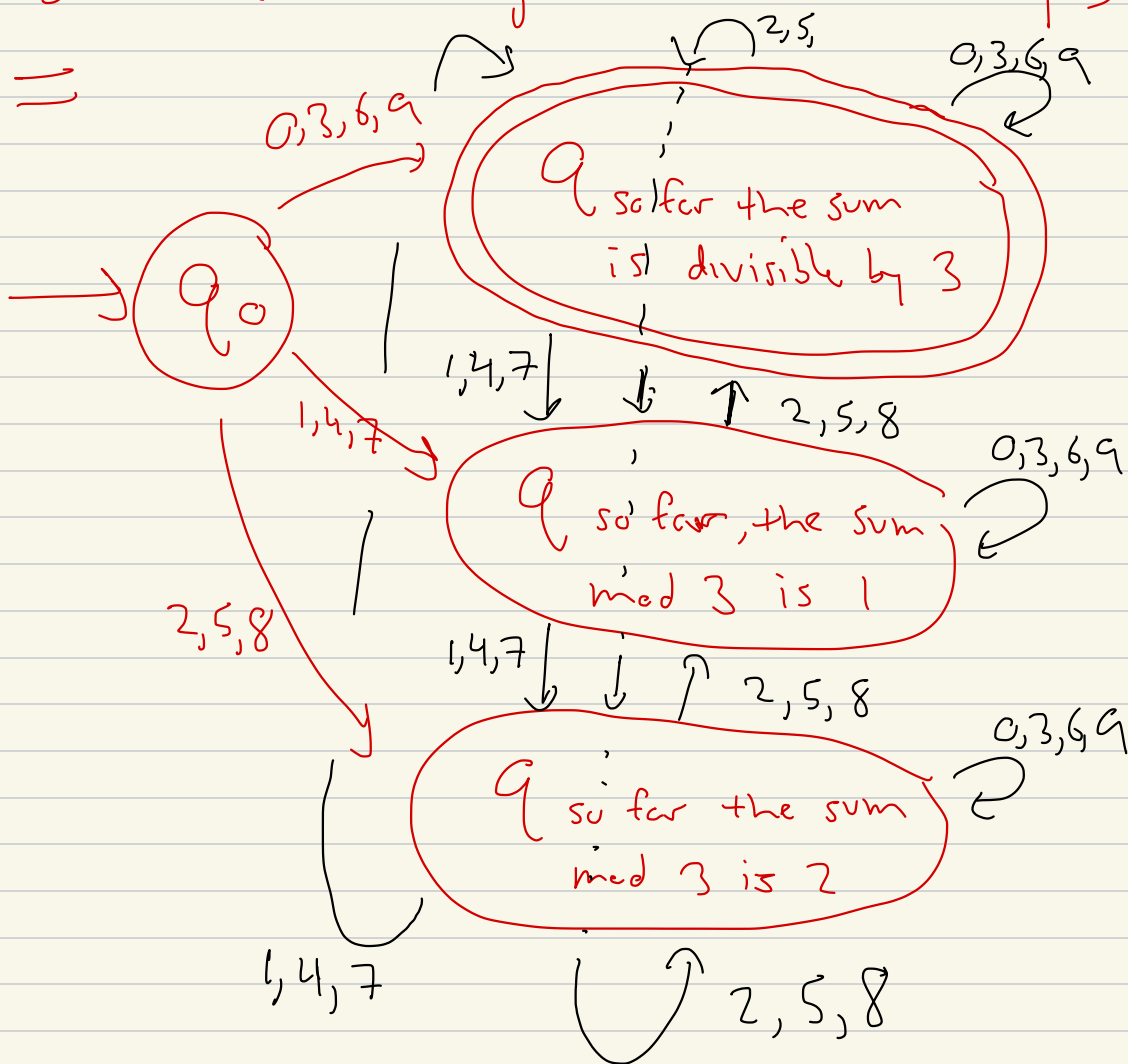 2,5,
0,3,6,9
0,3,6,9
q so far the sum
is divisible by 3
q0
1,4,7
2,5,8
1,4,7
0,3,6,9
q so far, the sum
mod 3 is 1
2,5,8
1,4,7
2,5,8
0,3,6,9
q so far the sum
mod 3 is 2
1,4,7
2,5,8